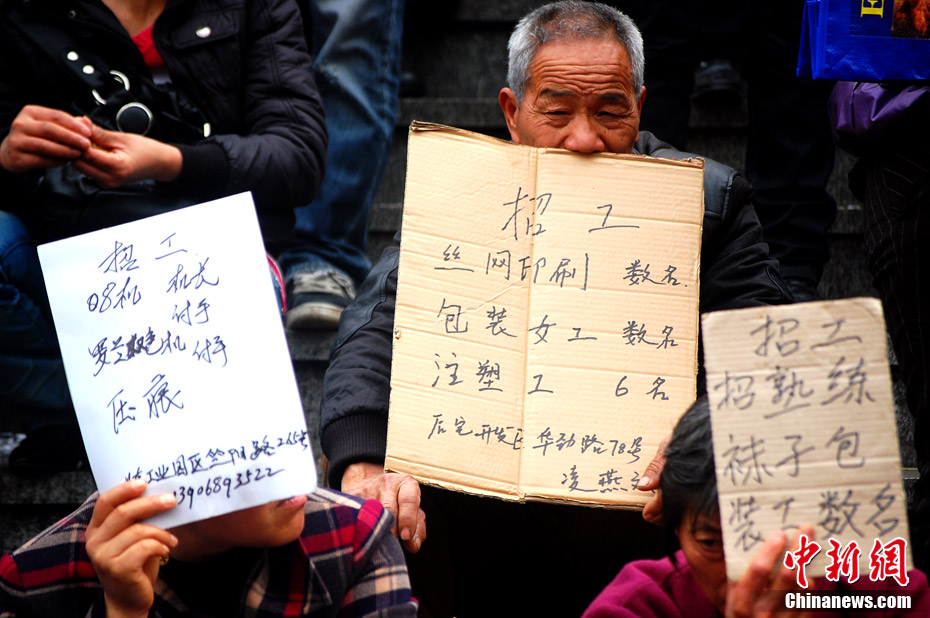 招工
08机 机长
付手
罗兰 机 付手
压痕
工业园区
13906893522
招 工
丝网印刷 数名.
包装女工 数名
注塑工 6名
后宅开发区华劲路78号
凌燕
招工
招熟练
袜子包
装工数名
E
中新网
Chinanews.com